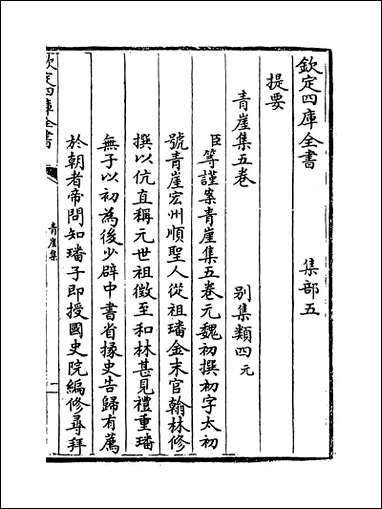 欽定四庫全書　集部五
提要
青崖集五卷　別集類四元
臣等謹案青崖集五卷元魏初撰初字太初
號青崖宏州順聖人從祖璠金末官翰林修
撰以伉直稱元世祖徵至和林甚見禮重璠
無子以初為後少辟中書省掾史告歸有薦
於朝者帝問知璠子即授國史院編修尋拜
欽定四庫全書
青崖集
一